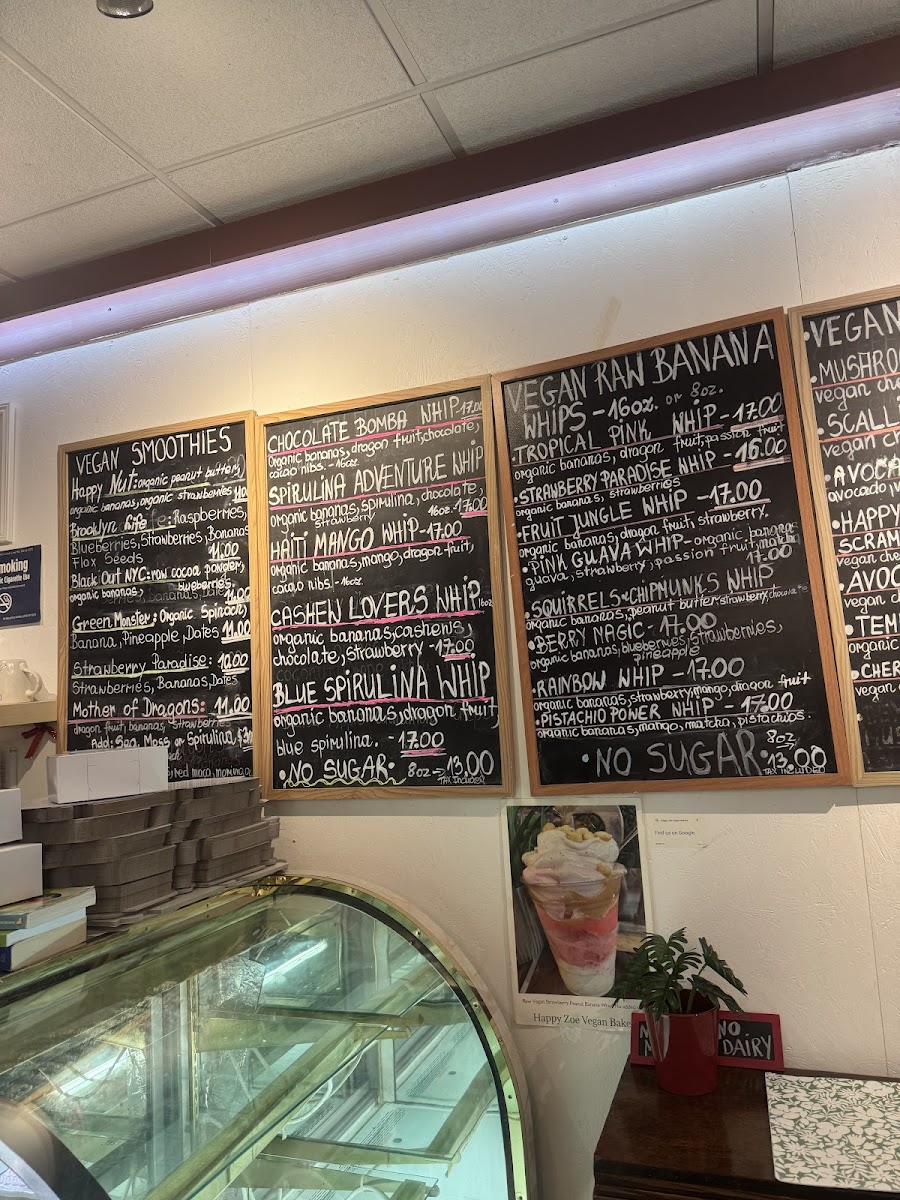 VEGAN SMOOTHIES
Happy Nut: organic peanut butter,
organic bananas, organic strawberries
Brooklyn Life: Raspberries,
Blueberries, Strawberries, Bananas
Flax Seeds 11.00
Black Out NYC: raw cocoa powder,
organic bananas, blueberries. 11.00
Green Monster: Organic Spinach,
Banana, Pineapple, Dates 11.00
Strawberry Paradise: 10.00
Strawberries, Bananas, Dates
Mother of Dragons: 11.00
dragon fruit, bananas, strawberries
Add: Sea Moss or Spirulina,
CHOCOLATE BOMBA WHIP-17.00
Organic bananas, dragon fruit, chocolate,
cacao nibs. - 16oz.
SPIRULINA ADVENTURE WHIP
organic bananas, spirulina, chocolate,
strawberry 16oz-17.00
HAITI MANGO WHIP-17.00
organic bananas, mango, dragon fruit,
cacao nibs. - 16oz.
CASHEW LOVERS WHIP 16oz
organic bananas, cashews,
chocolate, strawberry - 17.00
BLUE SPIRULINA WHIP
organic bananas, dragon fruit,
blue spirulina. - 17.00
•NO SUGAR• 8oz→13.00
TAX INCLUDED
VEGAN RAW BANANA
WHIPS - 16oz. or 8oz.
TROPICAL PINK WHIP-17.00
organic bananas, dragon fruit, passion fruit
•STRAWBERRY PARADISE WHIP - 16.00
organic bananas, strawberries
•FRUIT JUNGLE WHIP -17.00
organic bananas, dragon fruit, strawberry.
•PINK GUAVA WHIP- organic, banana
guava, strawberry, passion fruit, matcha
17.00
•SQUIRRELS&CHIPMUNKS WHIP
organic bananas, peanut butter, strawberry, chocolate
•BERRY MAGIC - 17.00
organic bananas, blueberries, strawberries,
pineapple
•RAINBOW WHIP -17.00
organic bananas, strawberry, mango, dragon fruit
•PISTACHIO POWER WHIP - 17.00
organic bananas, mango, matcha, pistachios.
•NO SUGAR• 8oz→
13.00
TAX INCLUDED
•VEGAN
•MUSHRO
vegan che
•SCALLI
vegan ch
•AVOCA
avocado, v
•HAPPY
SCRAM
vegan che
•AVOC
vegan ch
•TEMP
organic
•CHER
vegan
moking
Find us on Google
Raw Vegan Strawberry Peanut Banana Whip
Happy Zoe Vegan Bake
NO
DAIRY